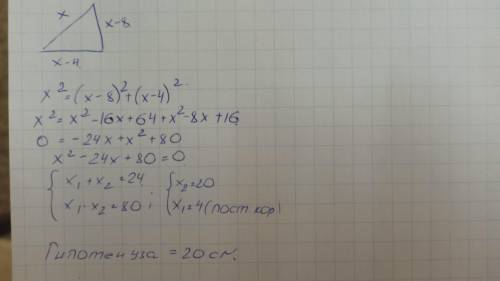 x
x-8
x-4
x²=(x-8)²+(x-4)²
x²=x²-16x+64+x²-8x+16
0=-24x+x²+80
x²-24x+80=0
{x₁+x₂=24 {x₂=20
{x₁·x₂=80; {x₁=4(пост.кор)
Гипотенуза =20см.